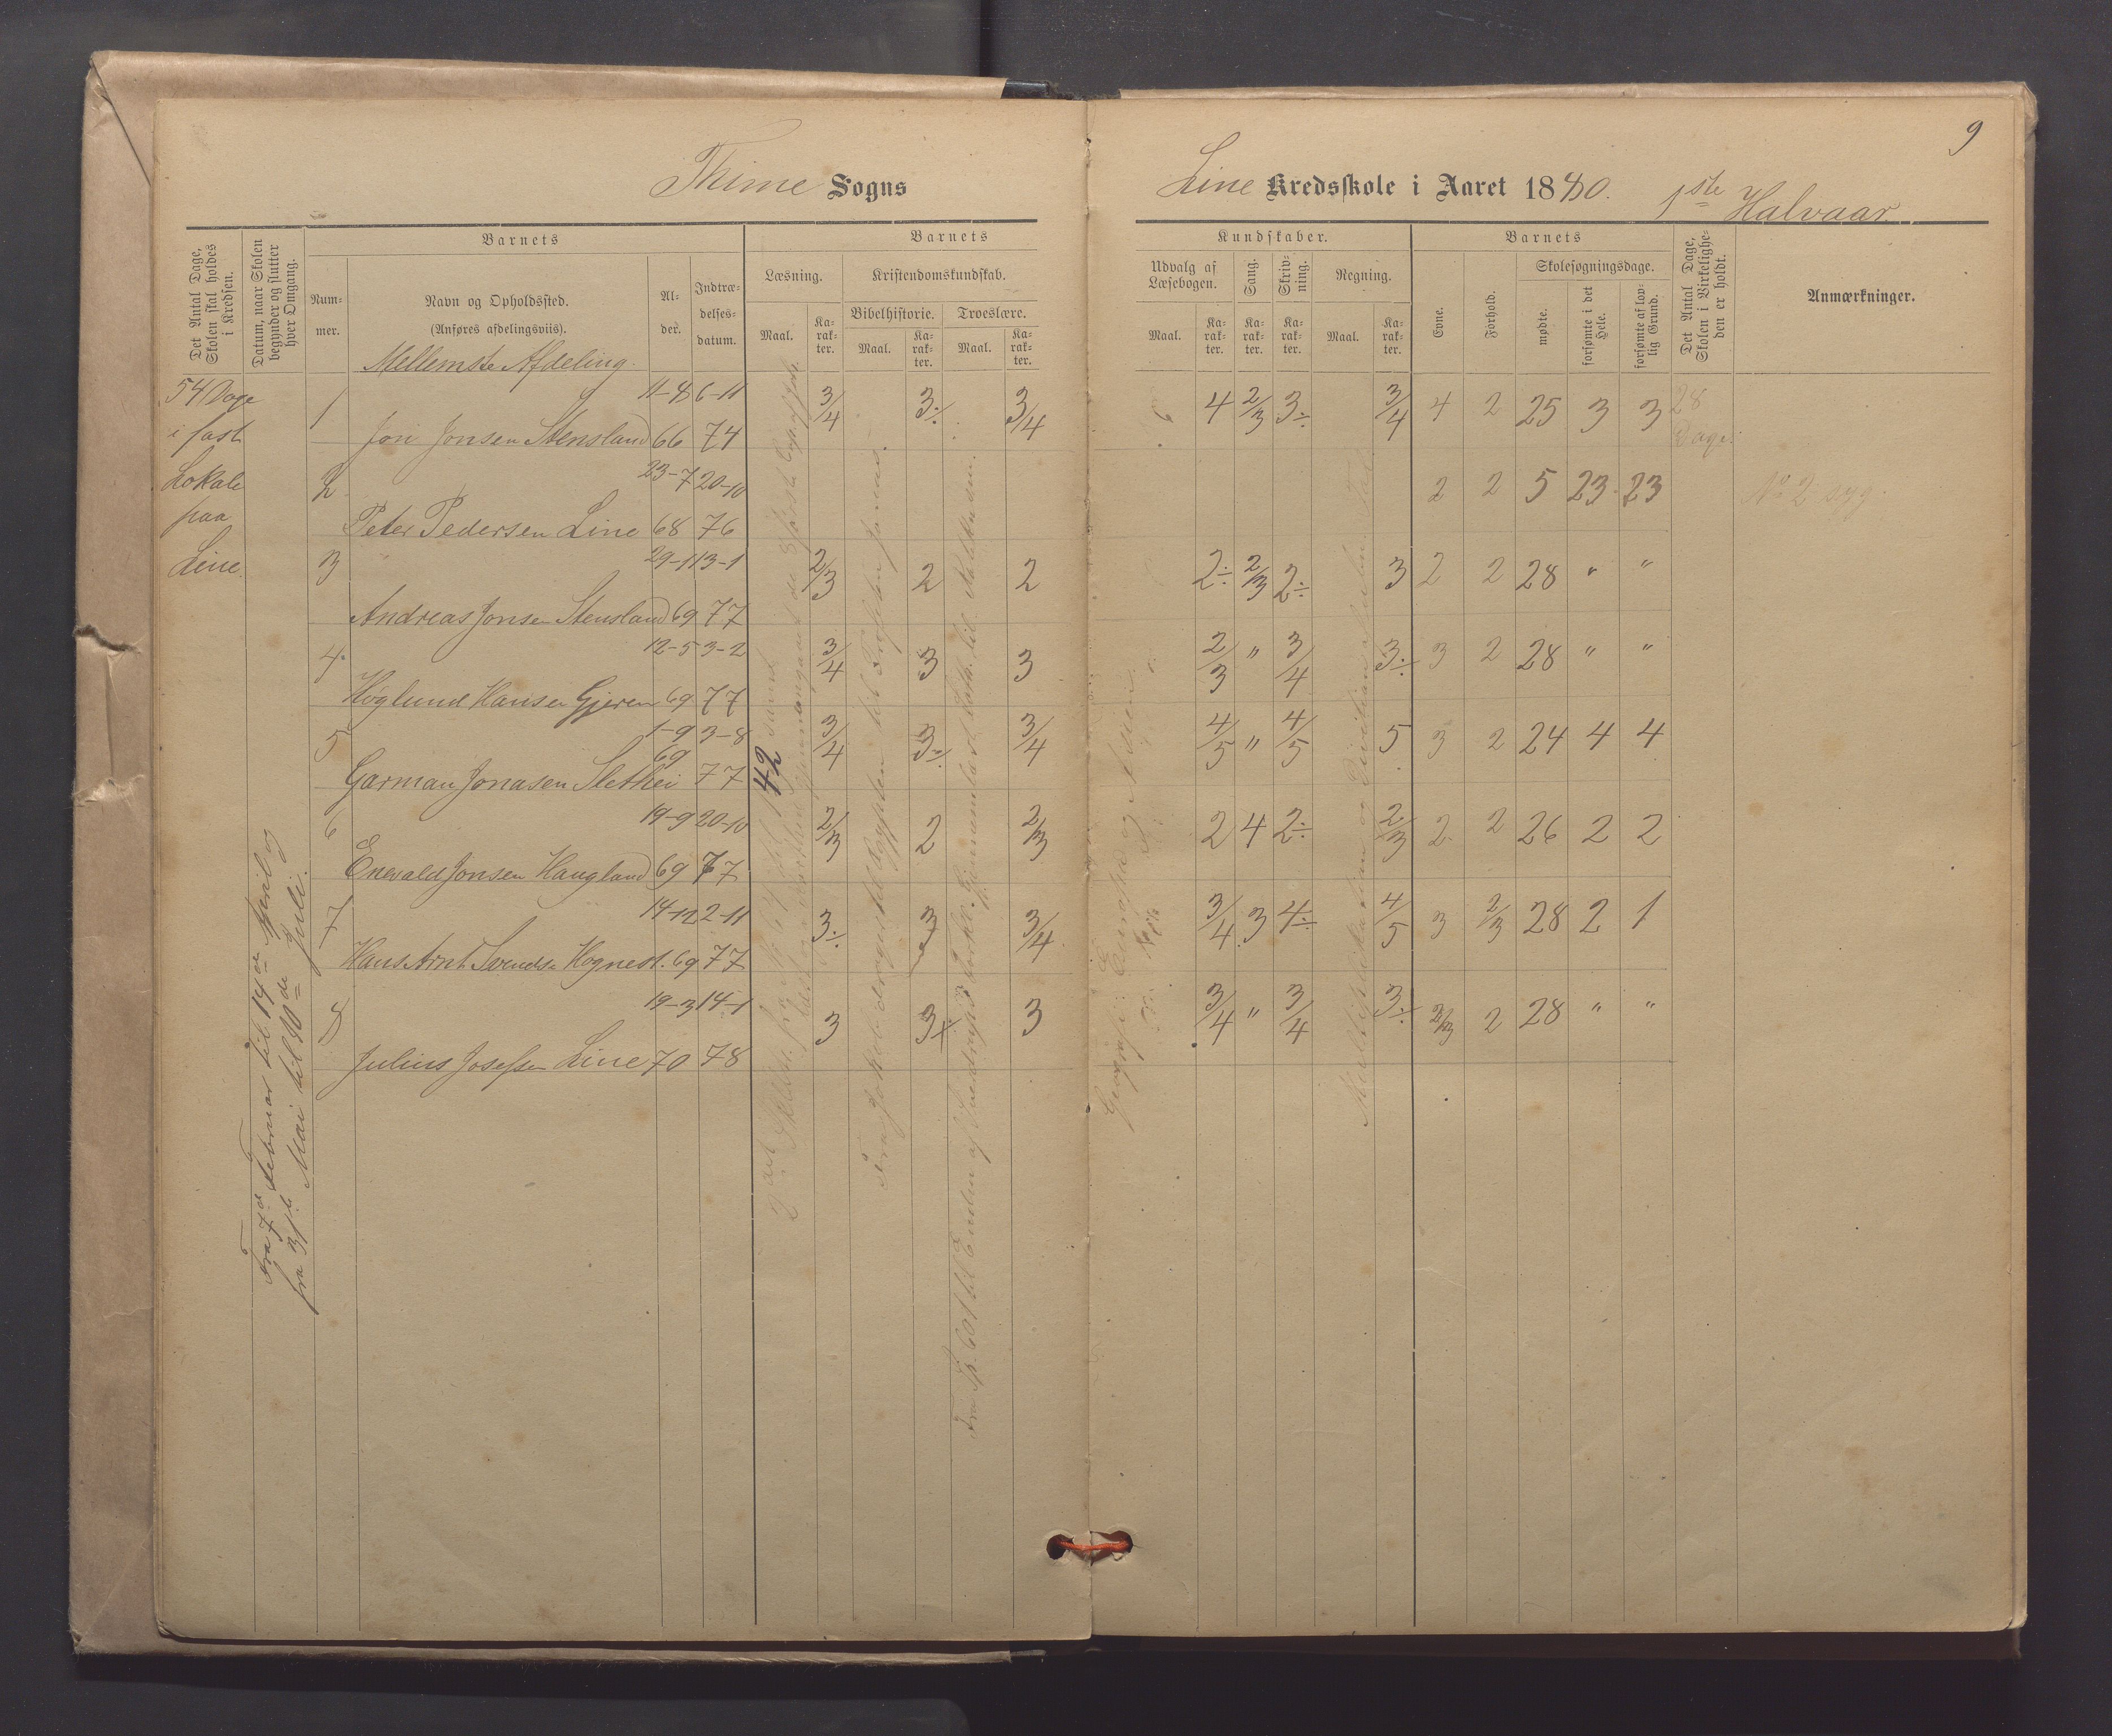 9
Thime Sogns
Line Kredsskole i Aaret 1880. 1ste Halvaar
Det Antal Dage, Skolen skal holdes i Kredsen.
Datum, naar Skolen begynder og slutter hver Omgang.
Barnets
Num-
mer.
Navn og Opholdssted.
(Anføres afdelingsviis).
Al-
der.
Indtræ-
delses-
datum.
Barnets
Læsning.
Maal.
Ka-
rak-
ter.
Kristendomskundskab.
Bibelhistorie.
Maal.
Ka-
rak-
ter.
Troeslære.
Maal.
Ka-
rak-
ter.
Kundskaber.
Udvalg af
Læsebogen.
Maal.
Ka-
rak-
ter.
Sang.
Ka-
rak-
ter.
Skriv-
ning.
Ka-
rak-
ter.
Regning.
Maal.
Ka-
rak-
ter.
Barnets
Evne.
Forhold.
Skolesøgningsdage.
mødte.
forsømte i det Hele.
forsømte af lov-
lig Grund.
Det Antal Dage, Skolen i Virkelighe-
den er holdt.
Anmærkninger.
Mellemste Afdeling.
54 Dage
i fast
Lokale
paa
Line.
Fra 7de Februar til 14de April og
fra 31te Mai til 10de Juli.
1 11-8 6-11 3/4 3÷ 3/4 4 2/3 3÷ 3/4 4 2 25 3 3 28
Jon Jonsen Stensland 66 74 Dage.
2 23-7 20-10 2 2 5 23 23 No 2 syg.
Peter Pedersen Line 68 76
3 29-1 13-1 2/3 2 2 2÷ 2/3 2÷ 3 2 2 28 " "
Andreas Jonsen Stensland 69 77
4. 12-5 3-2 3/4 3 3 2/3 " 3/4 3÷ 3 2 28 " "
Høglund Hansen Gjeren 69 77
5 1-9 3-8 3/4 3÷ 3/4 4/5 " 4/5 5 3 2 24 4 4
Garman Jonasen Slethei 69 77
6 19-9 20-10 2/3 2 2/3 2 4 2÷ 2/3 2 2 26 2 2
Enevald Jonsen Haugland 69 77
7 14-12 2-11 3÷ 3 3/4 3/4 3 4÷ 4/5 3 2/3 28 2 1
Hans Arnt Svends. Hognest. 69 77
8 19-3 14-1 3 3+ 3 3/4 " 3/4 3÷ 2/3 2 28 " "
Julius Josefsen Line 70 78
42
Geografi: Europa og Asien.